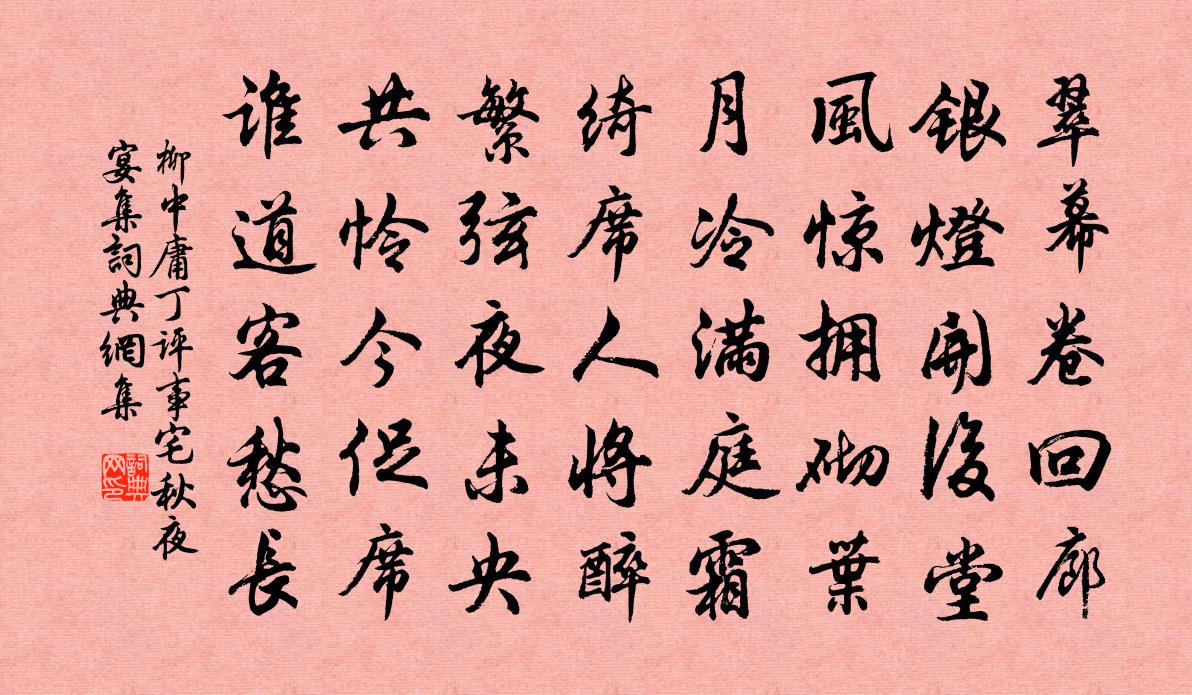 翠幕卷回廊
銀燈開後堂
風惊拥砌葉
月冷满庭霜
绮席人将醉
繁弦夜未央
共怜今促席
谁道客愁長
柳中庸丁评事宅秋夜
宴集詞典網集
詞典网印